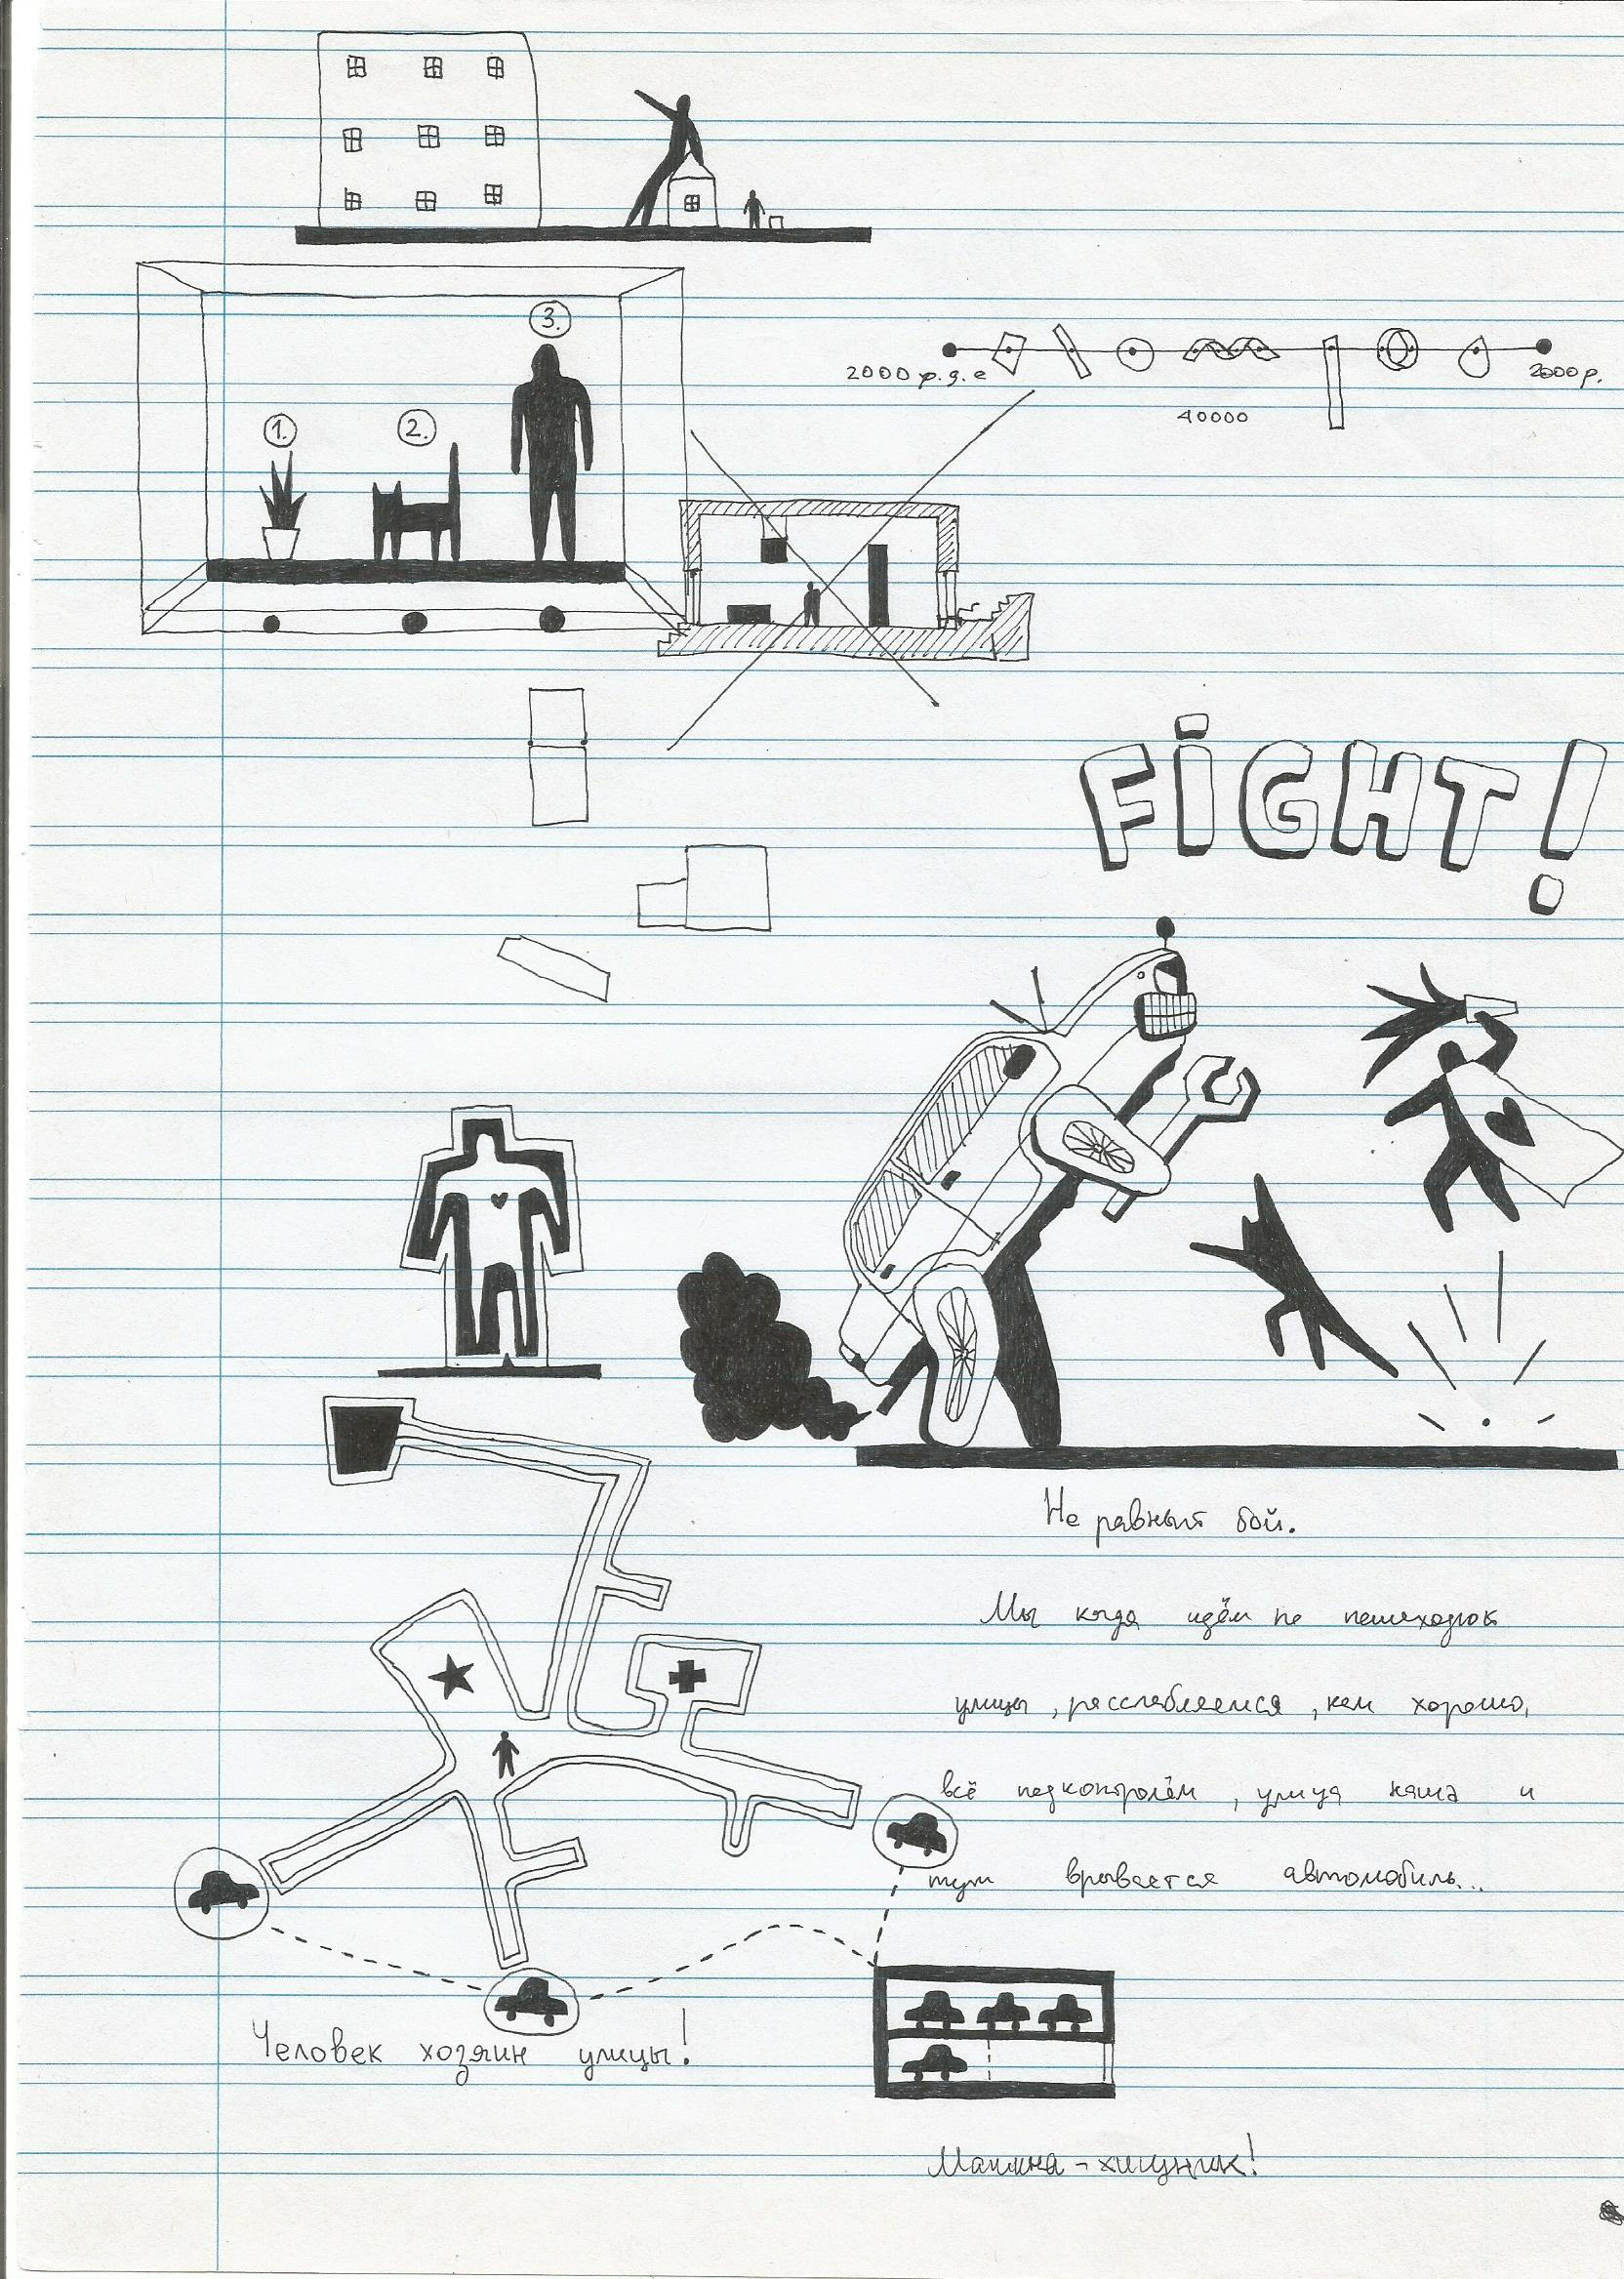 3.
1.
2.
2000
2000 р.
40000
FIGHT!
Не равный бой.
Мы когда идём по
улицы, расслабляемся, нам хорошо,
всё подконтролем, улица наша и
тут врывается автомобиль...
Человек хозяин улицы!
Машина - хищник!